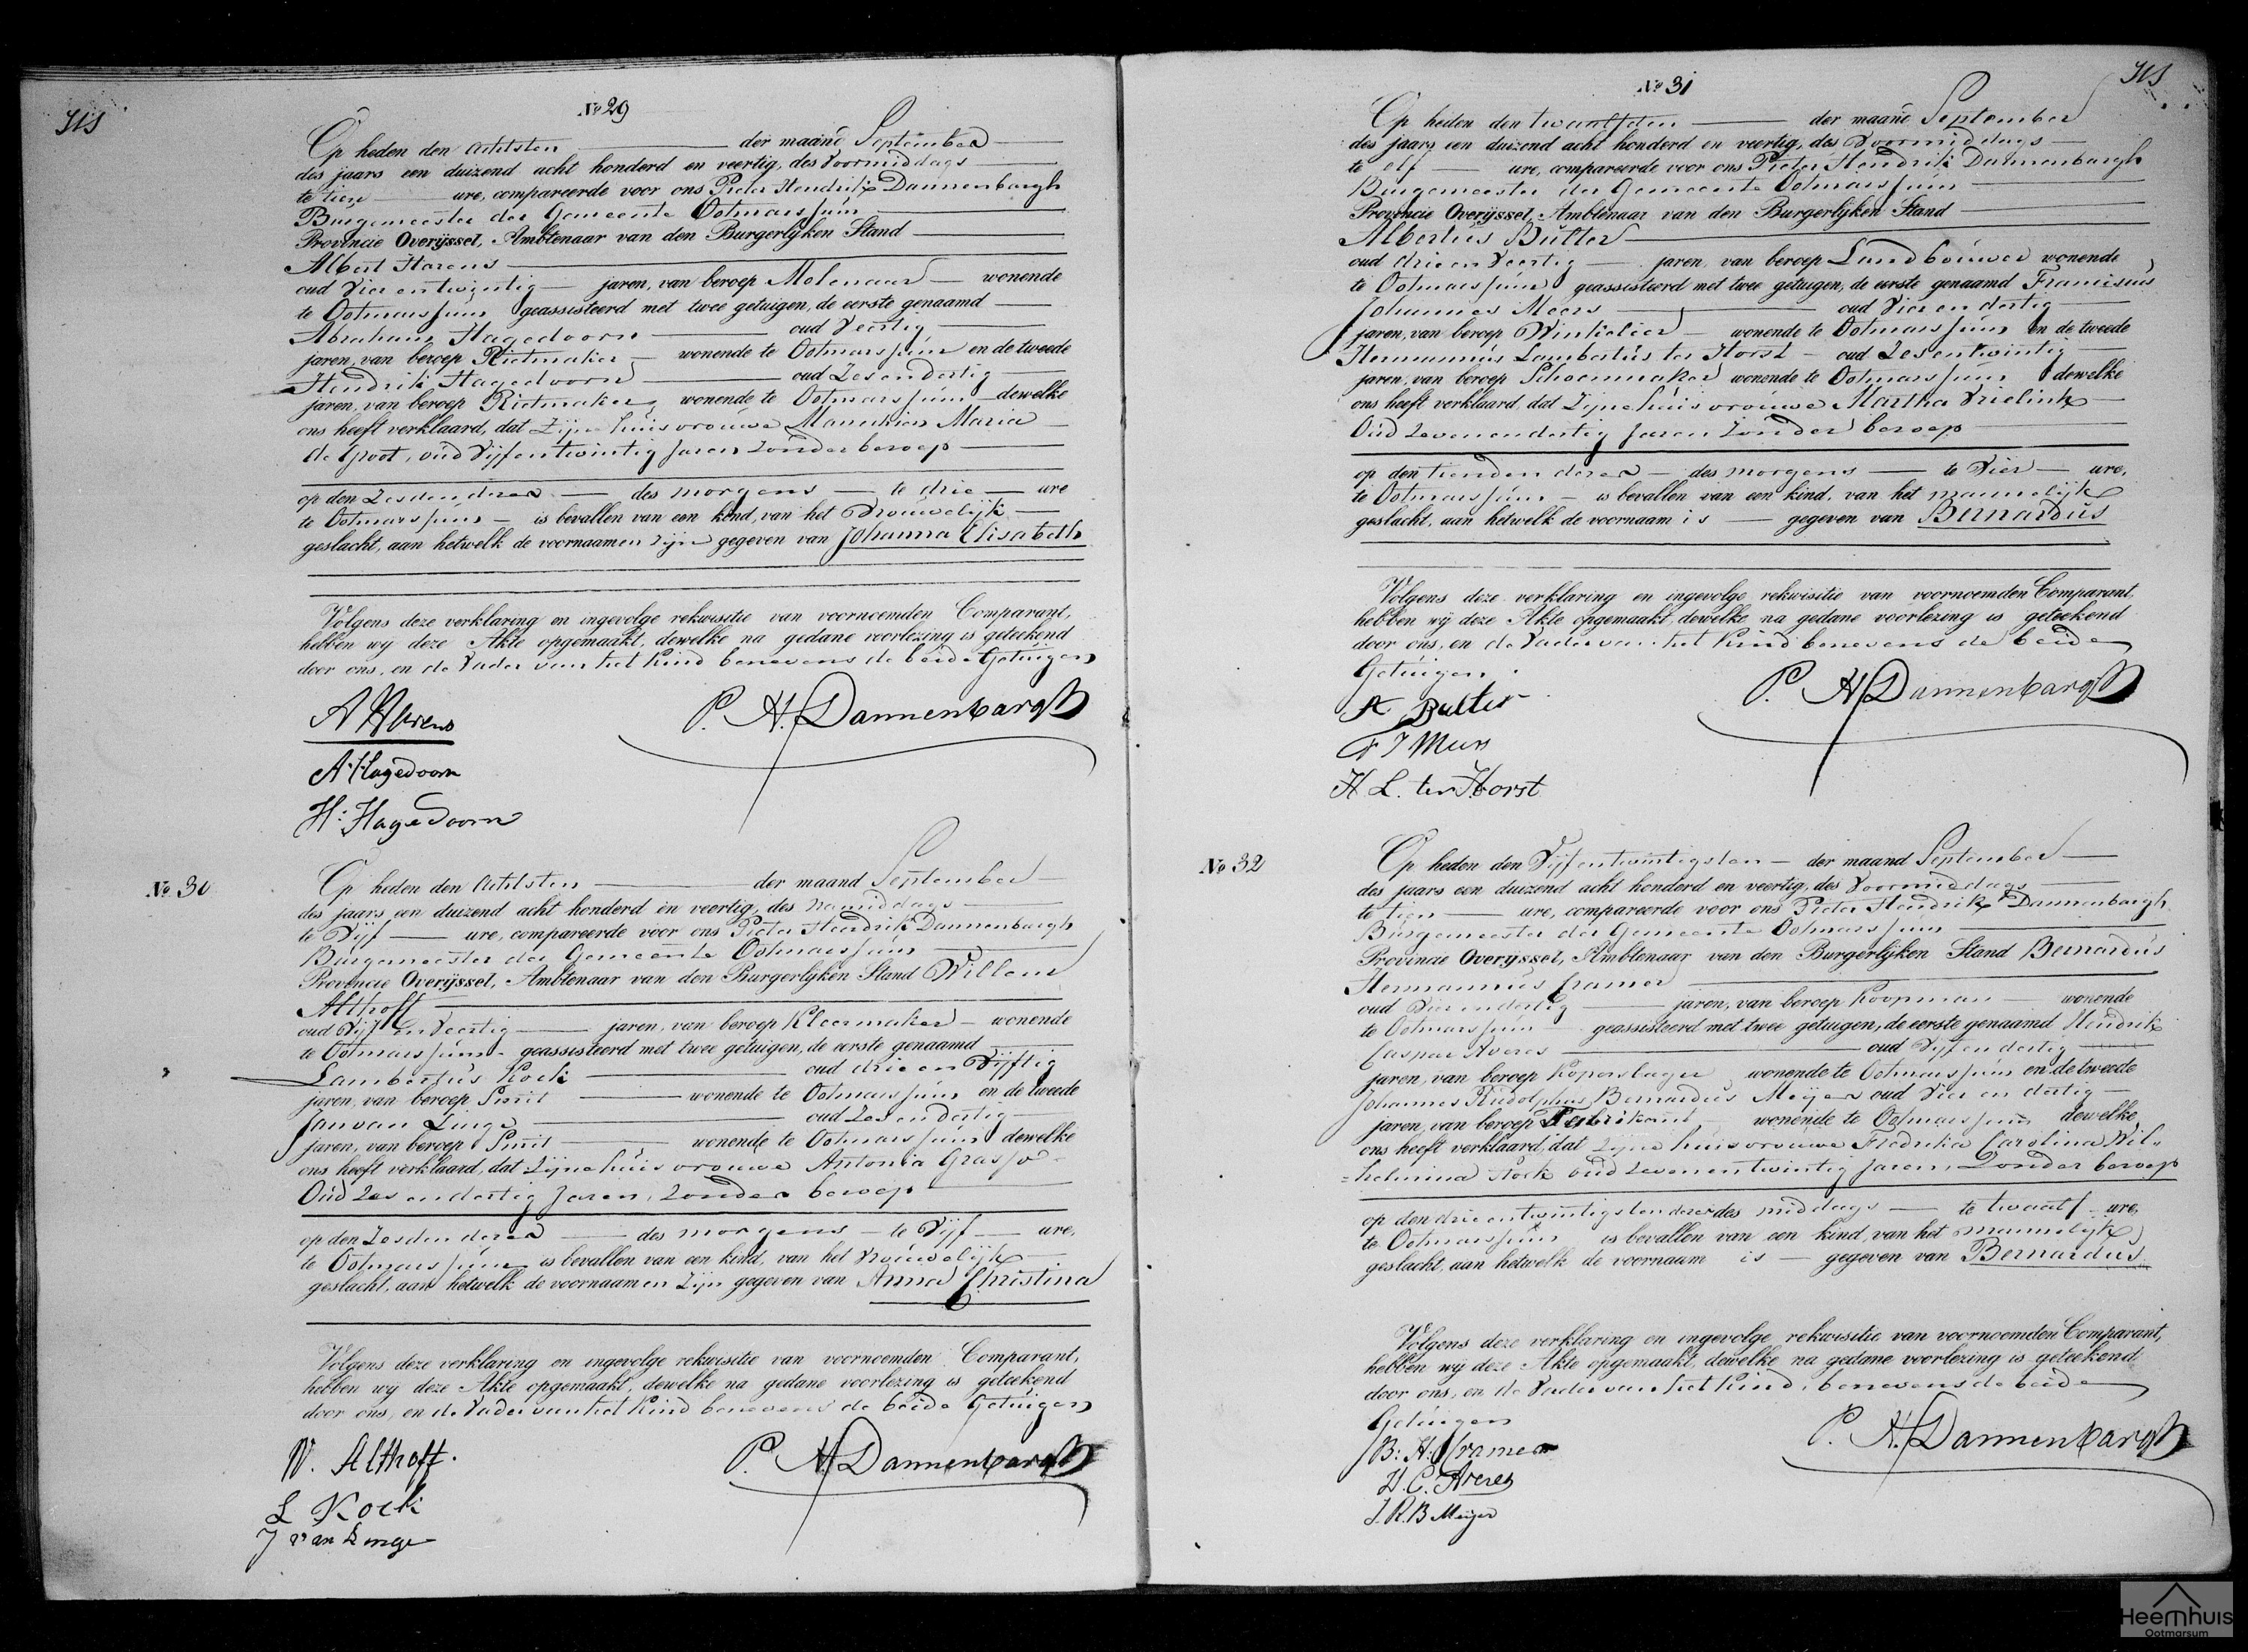 No 29
Op heden den achtsten der maand September
des jaars een duizend acht honderd en veertig, des Voormiddags
te tien ure, compareerde voor ons Pieter Hendrik Dannenbargh
Burgemeester der Gemeente Ootmarssum
Provincie Overijssel, Ambtenaar van den Burgerlyken Stand
Albert Harens
oud Vier en twintig jaren, van beroep Molenaar wonende
te Ootmarssum geassisteerd met twee getuigen, de eerste genaamd
Abraham Hagedoorn oud Veertig
jaren, van beroep Rietmaker wonende te Ootmarssum en de tweede
Hendrik Hagedoorn oud Zes en dertig
jaren, van beroep Rietmaker wonende te Ootmarssum dewelke
ons heeft verklaard, dat Zijne huisvrouwe Maria
de Groot, oud Vijf en twintig Jaren Zonder beroep
op den Zesden dezer des morgens te drie ure
te Ootmarssum is bevallen van een kind, van het Vrouwelijk
geslacht, aan hetwelk de voornaamen zijn gegeven van Johanna Elisabeth
Volgens deze verklaring en ingevolge rekwisitie van voornoemden Comparant,
hebben wy deze Akte opgemaakt, dewelke na gedane voorlezing is geteekend
door ons, en de Vader van het Kind benevens de beide Getuigen
P. H. Dannenbargh
A Hagedoorn
H: Hagedoorn
No 30
Op heden den achtsten der maand September
des jaars een duizend acht honderd en veertig, des namiddags
te Vijf ure, compareerde voor ons Pieter Hendrik Dannenbargh
Burgemeester der Gemeente Ootmarssum
Provincie Overijssel, Ambtenaar van den Burgerlyken Stand Willem
Althoff
oud Vijf en Veertig jaren, van beroep Kleermaker wonende
te Ootmarssum geassisteerd met twee getuigen, de eerste genaamd
Lambertus Kock oud drie en Vijftig
jaren, van beroep Smit wonende te Ootmarssum en de tweede
Jan van Linge oud Zes en dertig
jaren, van beroep Smit wonende te Ootmarssum dewelke
ons heeft verklaard, dat Zijne huisvrouwe Antonia
Oud Zes en dertig Jaren, Zonder beroep
op den Zesden dezer des morgens te Vijf ure,
te Ootmarssum is bevallen van een kind, van het Vrouwelijk
geslacht, aan hetwelk de voornaamen Zijn gegeven van Anna Christina
Volgens deze verklaring en ingevolge rekwisitie van voornoemden Comparant,
hebben wy deze Akte opgemaakt, dewelke na gedane voorlezing is geteekend
door ons, en de Vader van het Kind benevens de beide Getuigen
W. Althoff.
P. H. Dannenbargh
L Kock
J van Linge
No 31
Op heden den twaalfden der maand September
des jaars een duizend acht honderd en veertig, des Voormiddags
te elf ure, compareerde voor ons Pieter Hendrik Dannenbargh
Burgemeester der Gemeente Ootmarssum
Provincie Overijssel, Ambtenaar van den Burgerlyken Stand
Albertus Bulter
oud drie en Veertig jaren, van beroep Landbouwer wonende
te Ootmarssum geassisteerd met twee getuigen, de eerste genaamd Franciscus
Johannes Meers oud Vier en dertig
jaren, van beroep Winkelier wonende te Ootmarssum en de tweede
Hermannus Lambertus ter Horst oud Zes en twintig
jaren, van beroep Schoenmaker wonende te Ootmarssum dewelke
ons heeft verklaard, dat Zijne huisvrouwe Martha Vrielink
Oud Zeven en dertig Jaren Zonder beroep
op den tienden dezer des morgens te Vier ure,
te Ootmarssum is bevallen van een kind, van het mannelijk
geslacht, aan hetwelk de voornaam is gegeven van Bernardus
Volgens deze verklaring en ingevolge rekwisitie van voornoemden Comparant,
hebben wy deze Akte opgemaakt, dewelke na gedane voorlezing is geteekend
door ons, en de Vader van het Kind benevens de beide
Getuigen.
P. H. Dannenbargh
A Bulter
H. L. ter Horst
No 32
Op heden den Vijf en twintigsten der maand September
des jaars een duizend acht honderd en veertig, des Voormiddags
te tien ure, compareerde voor ons Pieter Hendrik Dannenbargh
Burgemeester der Gemeente Ootmarssum
Provincie Overijssel, Ambtenaar van den Burgerlyken Stand Bernardus
Hermannus Cramer
oud Vier en dertig jaren, van beroep Koopman wonende
te Ootmarssum geassisteerd met twee getuigen, de eerste genaamd Hendrik
Caspar Averes oud Vijf en dertig
jaren, van beroep Koperslager wonende te Ootmarssum en de tweede
Johannes Rudolphus Bernardus Meijer oud Vier en dertig
jaren, van beroep Fabrikant wonende te Ootmarssum dewelke
ons heeft verklaard, dat Zijne huisvrouwe Fredrika Carolina Wil-
helmina Stork oud Zeven en twintig Jaren, Zonder beroep
op den drie en twintigsten dezer des middags te twaalf ure,
te Ootmarssum is bevallen van een kind, van het mannelijk
geslacht, aan hetwelk de voornaam is gegeven van Bernardus
Volgens deze verklaring en ingevolge rekwisitie van voornoemden Comparant,
hebben wy deze Akte opgemaakt, dewelke na gedane voorlezing is geteekend
door ons, en de Vader van het Kind, benevens de beide
Getuigen
P. H. Dannenbargh
B: H: Cramer
H. C. Averes
J. R. B Meijer
Heemhuis
Ootmarsum